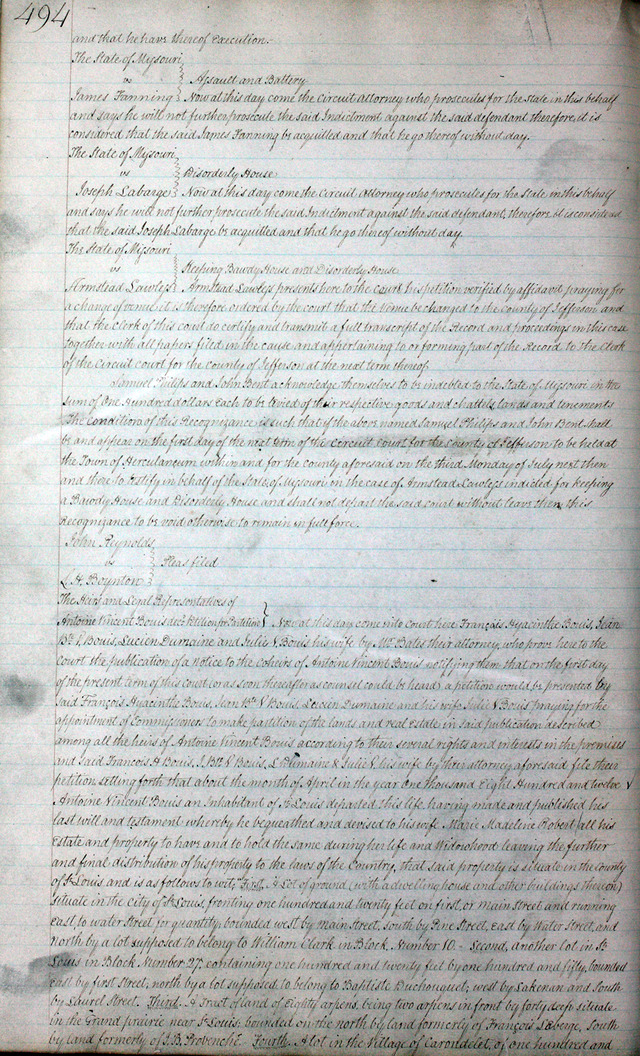 494
and that he have thereof Execution.
The State of Missouri
vs } Assault and Battery
James Fanning } Now at this day come the Circuit Attorney who prosecutes for the State in this behalf
and says he will not further prosecute the said Indictment against the said defendant therefore it is
considered that the said James Fanning be acquitted and that he go thereof without day.
The State of Missouri
vs } Disorderly House
Joseph Labarge } Now at this day come the Circuit Attorney who prosecutes for the State in this behalf
and says he will not further prosecute the said Indictment against the said defendant, therefore it is considered
that the said Joseph Labarge be acquitted and that he go thereof without day.
The State of Missouri
vs } Keeping Bawdy House and Disorderly House
Armstead Lawless } Armstead Lawless presents here to the court his petition verified by affidavit praying for
a change of venue, it is therefore ordered by the court that the venue be changed to the County of Jefferson and
that the Clerk of this court do certify and transmit a full transcript of the Record and proceedings in this case
together with all papers filed in the cause and appertaining to or forming part of the Record to the Clerk
of the Circuit court for the county of Jefferson at the next term thereof.
Samuel Philips and John Bent acknowledge themselves to be indebted to the State of Missouri in the
sum of One Hundred dollars Each to be levied of their respective goods and chattels, lands and tenements
The Condition of this Recognizance is such that if the above named Samuel Philips and John Bent shall
be and appear on the first day of the next term of the Circuit Court for the County of Jefferson to be held at
the Town of Herculaneum within and for the county aforesaid on the third Monday of July next then
and there to testify in behalf of the State of Missouri in the case of Armstead Lawless indicted for keeping
a Bawdy House and Disorderly House and shall not depart the said court without leave then this
Recognizance to be void otherwise to remain in full force.
John Reynolds
vs } Pleas filed
L. H. Boynton
The Heirs and Legal Representatives of
Antoine Vincent Bouis decd Petition for Partition } Now at this day come into Court here François Hyacinthe Bouis, Jean
Bte V Bouis, Lucien Dumaine and Julie V Bouis his wife by Mr Bates their attorney, who prove here to the
court the publication of a notice to the coheirs of Antoine Vincent Bouis notifying them that on the first day
of the present term of this court (or as soon thereafter as counsel could be heard) a petition would be presented by
said François Hyacinthe Bouis, Jean Bte V Bouis, Lucien Dumaine and his wife Julie V Bouis praying for the
appointment of Commissioners to make partition of the lands and real Estate in said publication described
among all the heirs of Antoine Vincent Bouis according to their several rights and interests in the premises
and Said Francois H Bouis, J. Bte V Bouis, L Dumaine & Julie V his wife by their attorney aforesaid file their
petition setting forth that about the month of April in the year one thousand Eight Hundred and twelve
Antoine Vincent Bouis an Inhabitant of St Louis departed this life having made and published his
last will and testament whereby he bequeathed and devised to his wife Marie Madeline Robert all his
Estate and property to have and to hold the same during her life and Widowhood leaving the further
and final distribution of his property to the laws of the Country, that said property is situate in the county
of St Louis and is as follows to wit, First. A Lot of ground (with a dwelling house and other buildings thereon)
situate in the city of St Louis, fronting one hundred and twenty feet on first or main Street and running
east to water Street for quantity, bounded west by main street, south by Pine Street, east by Water Street, and
north by a lot supposed to belong to William Clark in Block Number 10. Second, another lot in St
Louis in Block Number 27, containing one hundred and twenty feet by one hundred and fifty, bounded
east by first Street, north by a lot supposed to belong to Baptiste Duchouquet, west by Lakenan and South
by Laurel Street. Third. A Tract of land of Eighty arpens, being two arpens in front by forty deep situate
in the Grand prairie near St Louis bounded on the north by land formerly of François Laberge, South
by land formerly of J. B. Provenché. Fourth. A lot in the Village of Carondelet, of one hundred and